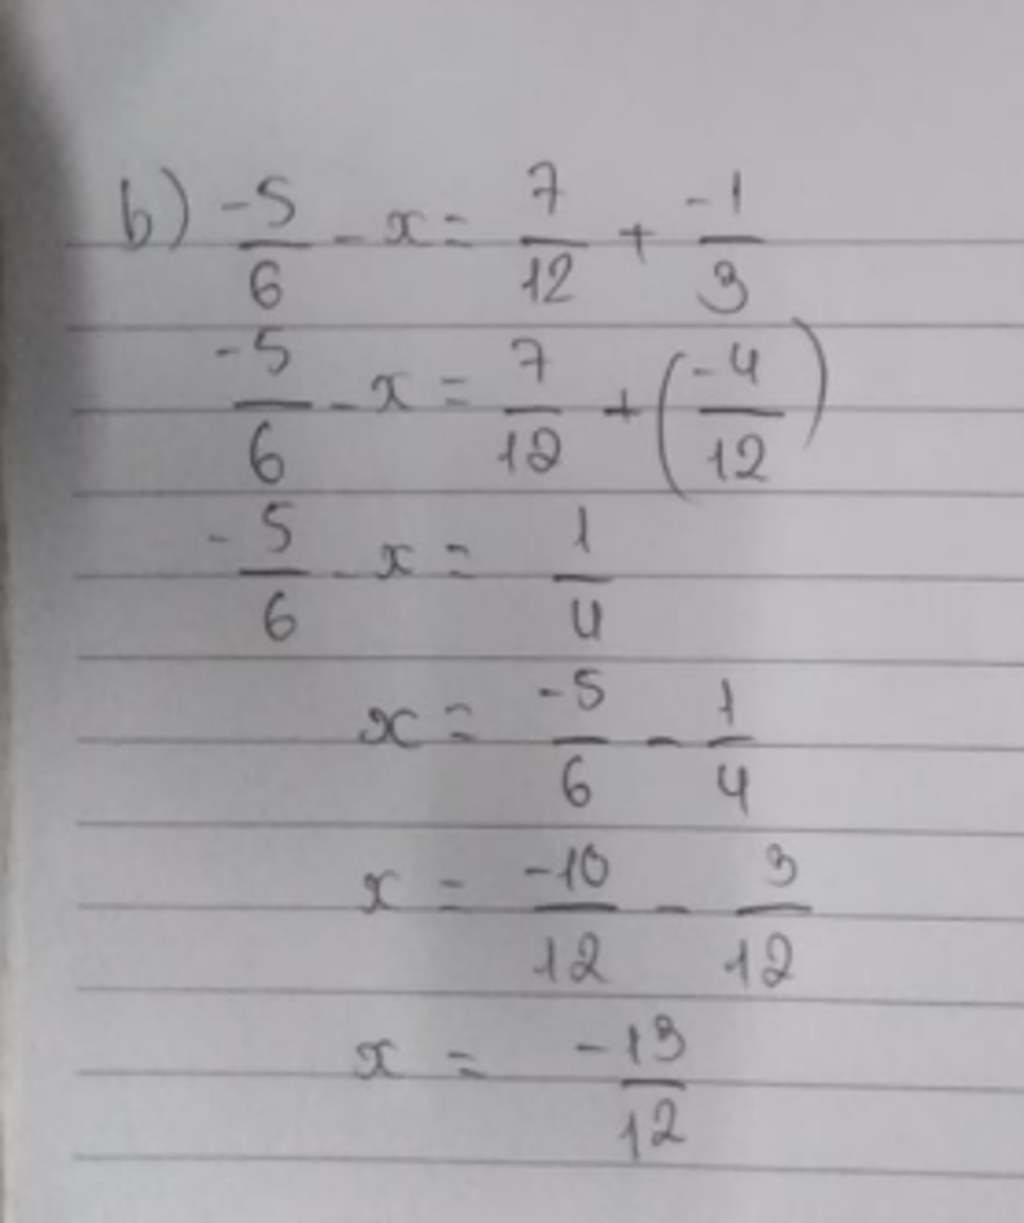 b) -5/6 - x = 7/12 + -1/3
-5/6 - x = 7/12 + (-4/12)
-5/6 - x = 1/4
x = -5/6 - 1/4
x = -10/12 - 3/12
x = -13/12